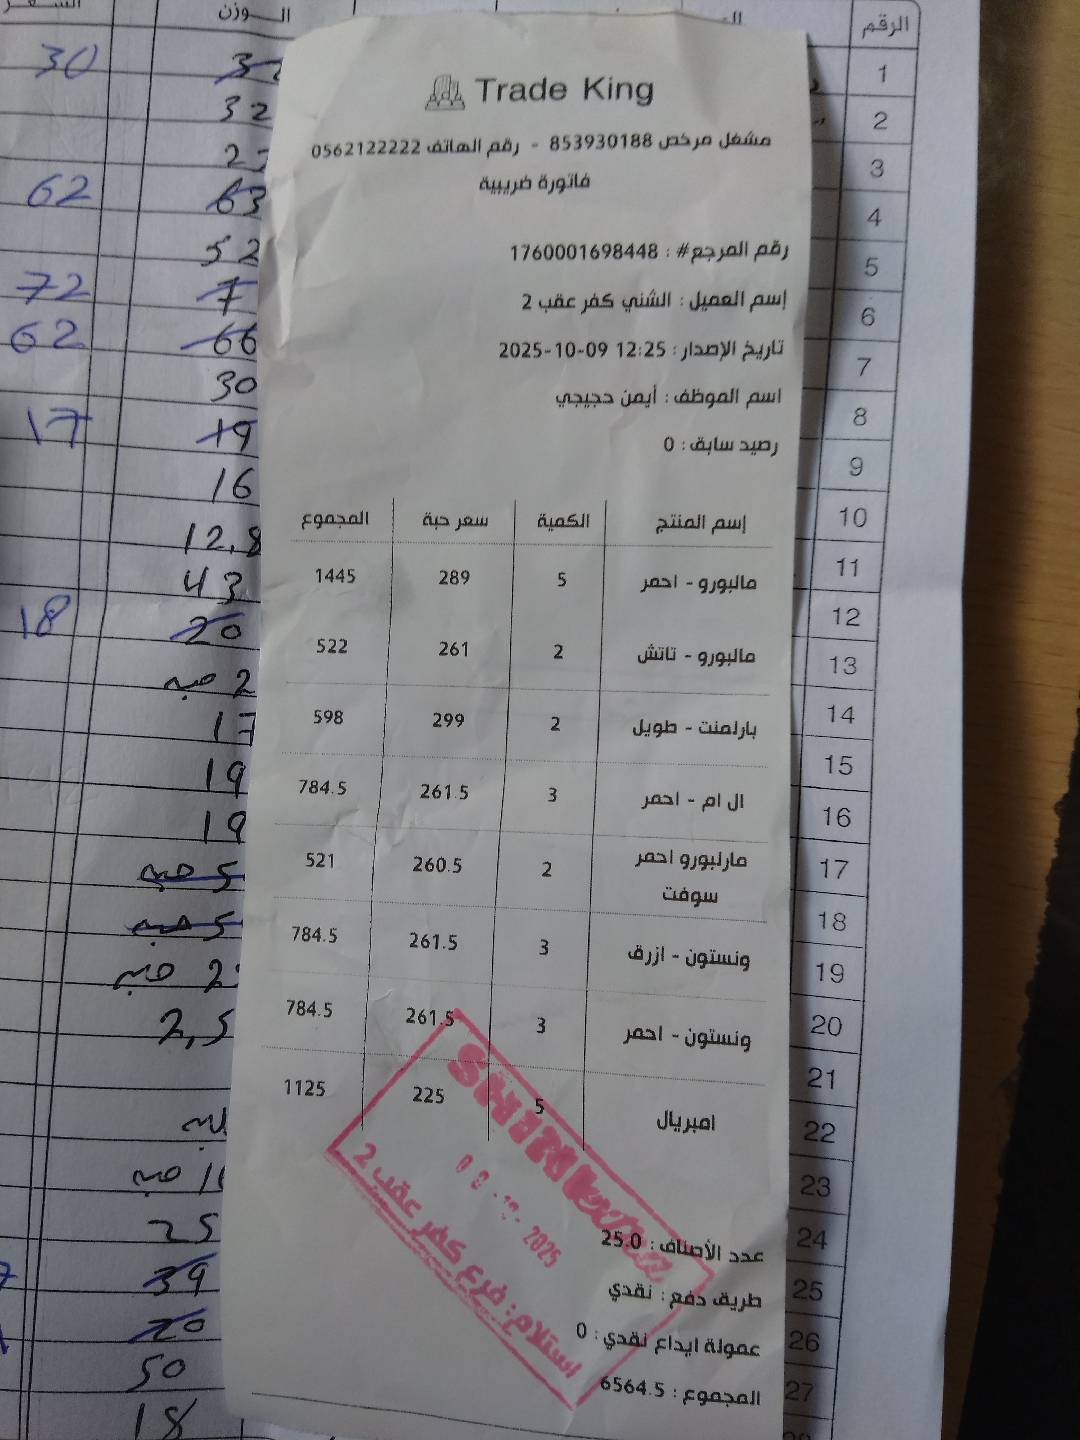 Trade King
مشغل مرخص 853930188 - رقم الهاتف 0562122222
فاتورة ضريبية
رقم المرجع# : 1760001698448
إسم العميل : الشني كفر عقب 2
تاريخ الإصدار : 12:25 2025-10-09
اسم الموظف : أيمن حجيجي
رصيد سابق : 0
إسم المنتج الكمية سعر حبة المجموع
مالبورو - احمر 5 289 1445
مالبورو - تاتش 2 261 522
بارلمنت - طويل 2 299 598
ال ام - احمر 3 261.5 784.5
مارلبورو احمر سوفت 2 260.5 521
ونستون - ازرق 3 261.5 784.5
ونستون - احمر 3 261.5 784.5
امبريال 5 225 1125
عدد الأصناف : 25.0
طريق دفع : نقدي
عمولة ايداع نقدي : 0
المجموع : 6564.5
استلام : فرع كفر عقب 2
2025
الرقم
1
2
3
4
5
6
7
8
9
10
11
12
13
14
15
16
17
18
19
20
21
22
23
24
25
26
27
الوزن
30
32
62
63
52
72
7
62
66
30
17
19
16
12,8
43
18
20
2 حبه
17
19
19
5 حبه
5 حبه
2,5
25
39
20
50
18